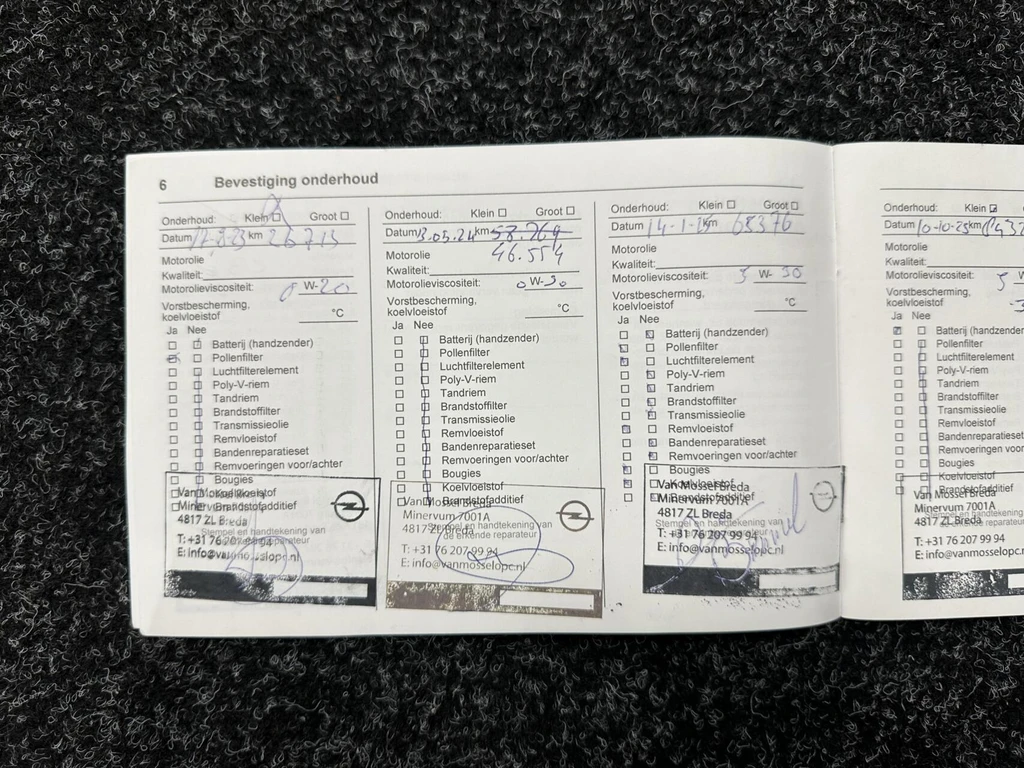 6 Bevestiging onderhoud
Onderhoud: Klein Groot
Datum km 26713
Motorolie
Kwaliteit:
Motorolieviscositeit: 0 W-20
Vorstbescherming,
koelvloeistof °C
Ja Nee
Batterij (handzender)
Pollenfilter
Luchtfilterelement
Poly-V-riem
Tandriem
Brandstoffilter
Transmissieolie
Remvloeistof
Bandenreparatieset
Remvoeringen voor/achter
Bougies
Koelvloeistof
Brandstofadditief
Van Mossel Breda
Minervum 7001A
4817 ZL Breda
Stempel en handtekening van
de erkende reparateur
T: +31 76 207 99 94
E: info@vanmosselopc.nl
Onderhoud: Klein Groot
Datum 13.05.24 km 58.769
Motorolie 46.554
Kwaliteit:
Motorolieviscositeit: 0 W-30
Vorstbescherming,
koelvloeistof °C
Ja Nee
Batterij (handzender)
Pollenfilter
Luchtfilterelement
Poly-V-riem
Tandriem
Brandstoffilter
Transmissieolie
Remvloeistof
Bandenreparatieset
Remvoeringen voor/achter
Bougies
Koelvloeistof
Brandstofadditief
Van Mossel Breda
Minervum 7001A
4817 ZL Breda
Stempel en handtekening van
de erkende reparateur
T: +31 76 207 99 94
E: info@vanmosselopc.nl
Onderhoud: Klein Groot
Datum 14-1-25 km 65376
Motorolie
Kwaliteit:
Motorolieviscositeit: 5 W-30
Vorstbescherming,
koelvloeistof °C
Ja Nee
Batterij (handzender)
Pollenfilter
Luchtfilterelement
Poly-V-riem
Tandriem
Brandstoffilter
Transmissieolie
Remvloeistof
Bandenreparatieset
Remvoeringen voor/achter
Bougies
Koelvloeistof
Brandstofadditief
Van Mossel Breda
Minervum 7001A
4817 ZL Breda
Stempel en handtekening van
de erkende reparateur
T: +31 76 207 99 94
E: info@vanmosselopc.nl
Onderhoud: Klein
Datum 10-10-25 km
Motorolie
Kwaliteit:
Motorolieviscositeit: 5
Vorstbescherming,
koelvloeistof
Ja Nee
Batterij (handzender)
Pollenfilter
Luchtfilterelement
Poly-V-riem
Tandriem
Brandstoffilter
Transmissieolie
Remvloeistof
Bandenreparatieset
Remvoeringen voor/achter
Bougies
Koelvloeistof
Brandstofadditief
Van Mossel Breda
Minervum 7001A
4817 ZL Breda
Stempel en handtekening
de erkende reparateur
T: +31 76 207 99 94
E: info@vanmosselopc.nl